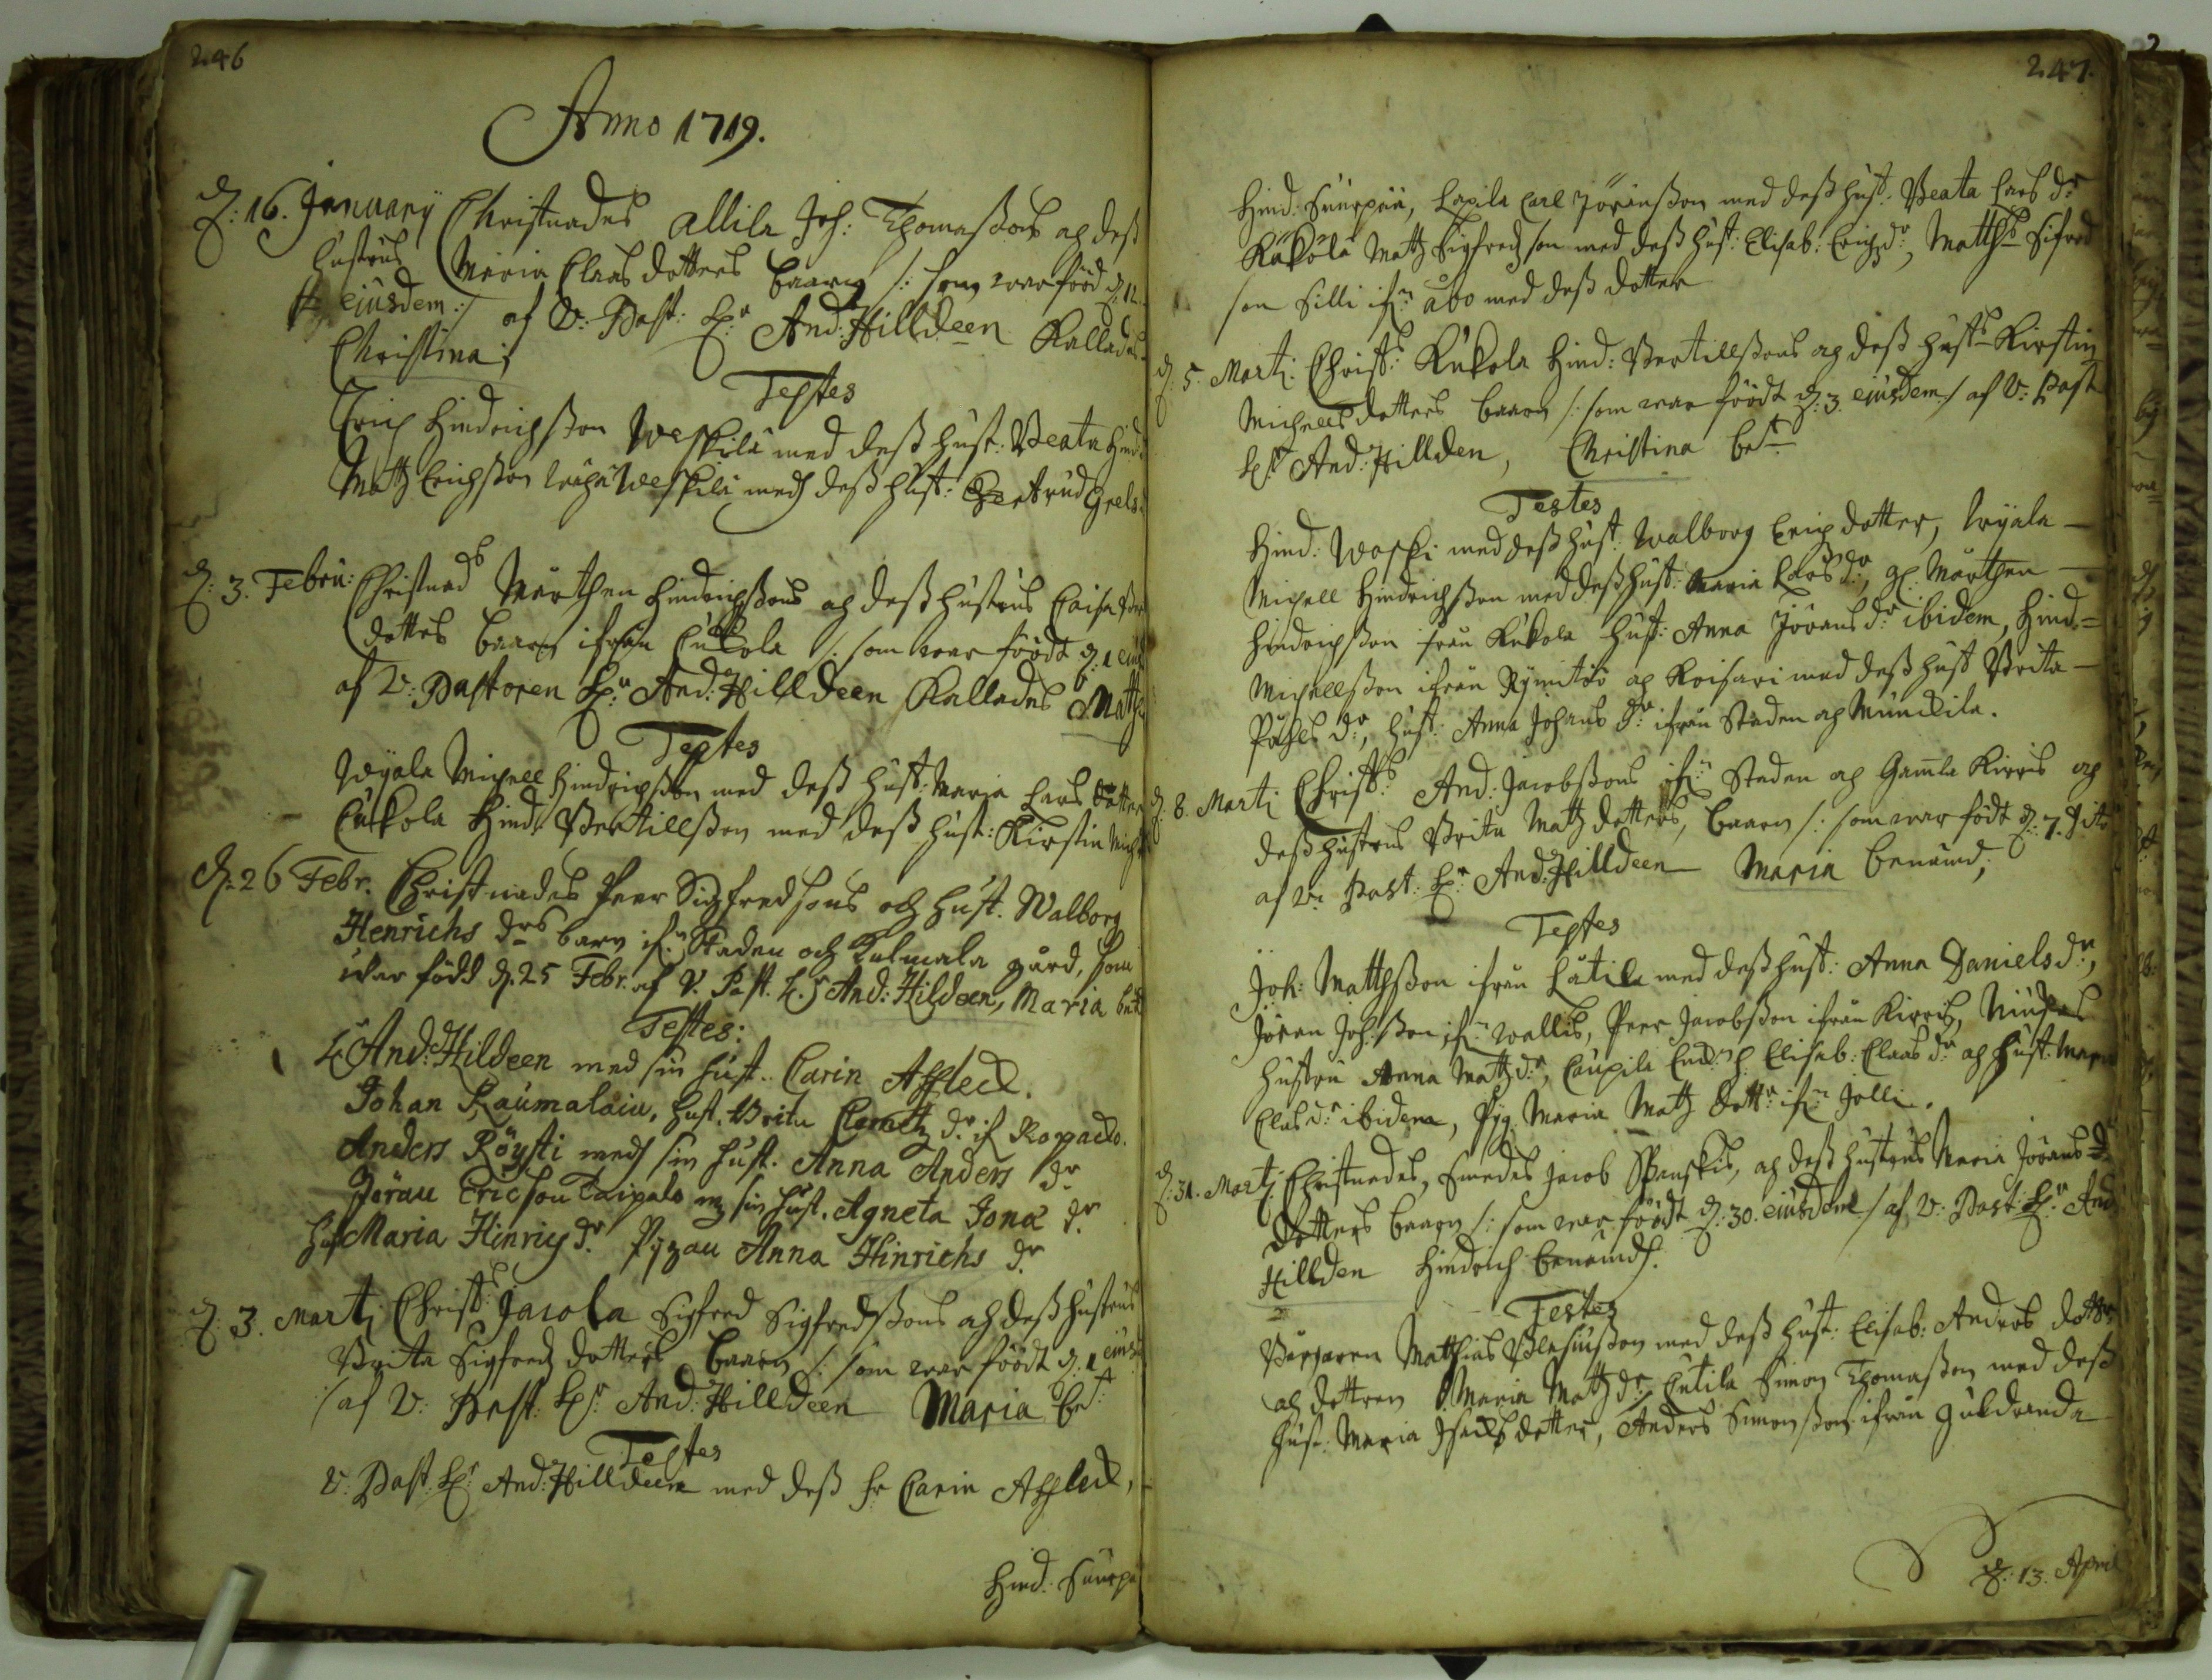 246
Anno 1719.
d: 16. January Christnades allila Joh: Thomaßons og deß
hustrus Maria Claas dotters baarn /: som war född d. 12.
ejusdem :/ af V: Past: H:r And: Hilldeen Kallades
Christina;
Testes
Erich Hindrichßon Weskila med deß hust: Beata Hind
Matz Erichßon Wäskila medh deß hust: Gertrud Grels
d: 3. Febru: Christnad:s Mårthen Hindrichßons og deß hustrus Caisa
dotters baarn ifrån Cuckola /: som war föödt d: 1 ejus
af V: Pastoren H:r And: Hilldeen Kallades Matts
Testes
Wyala Michell Hindrichßon med deß hust: Maria Lars dotter
Cuckola Hind: Bertillßon med deß hust: Kirstin Mich
d. 26 Febr. Christnades Peer Sigfredsons och hust. Walborg
Henrichs drs barn if:n Staden och Kulmala gård, som
war född d. 25 Febr. af V. Past. H.r And: Hildeen, Maria
Testes:
H And: Hildeen med sin hust. Carin Affleck.
Johan Raumalain, hust. Brita Clemetz dr if
Anders Röysti medh sin hust. Anna Anders dr
Jöran Ericson Taipale m sin hust. Agneta Jona dr.
hust Maria Hinrichs dr. Pigan Anna Hinrichs dr.
d: 3. Marti Christ:s Jacola Sigfred Sigfredßons och deß hustrus
Brita Sigfredz dotters baarn /: som war föödt d. 1 ejusd
/ af V: Past: H:r And: Hilldeen Maria be:t
Testes
V: Past: H:r And: Hilldeen med deß fr Carin Affleck,
Hind: Suurpä
247.
Hind: Suurpää, Lapila Carl Jöranßon med deß hust: Beata Lars dr
Kukola Matz Sigfredz son med deß hust: Elisab: Erichz dr, Matths Sifred
son Silli if:n åbo med deß dotter
d: 5. Marti Christ:s Kukola Hind: Bertillßons og deß hust:s Kirstin
Michells dotters baarn /: som war föödt d: 3. ejusdem :/ af V: Past
H:r And: Hillden, Christina be:t
Testes
Hind: Waski med deß hust: Walborg Erichz dotter, Wyala
Michell Hindrichßon med deß hust: Maria Lars dr, Mårthen
Hindrichßon från Kukola hust: Anna Jörans dr ibidem, Hind=
Michellßon ifrån Rymitöö og Koisari med deß hust Brita
Påhls dr, hust: Anna Johans dr ifrån Staden og Munckila.
d: 8. Marti Christ:s And: Jacobßons if:n Staden og Gamla Kirris og
deß hustrus Brita Matz dotters, baarn /: som war född d. 7. dito
af V: Past: H:r And: Hilldeen Maria benämd;
Testes
Joh: Matthßon ifrån Lätila med deß hust: Anna Daniels dr,
Jöran Joh:ßon if:n Wallis, Peer Jacobßon ifrån Kirris,
hustru Anna Matz dr, Caupila Elisab: Claas dr og hust: Maria
Clas dr ibidem, Pig Maria Matz dott:r if:n Jolli.
d: 31. Marti Christnades, Smedes Jacob Spanskis, og deß hustrus Maria Jörans
dotters baarn /: som war föödt d: 30. ejusdem :/ af V: Past: H:r And
Hillden Hindrich benämdh.
Testes
Borgaren Matthias Blasiußon med deß hust: Elisab: Anders dotter
og dottren Maria Matz dr, Cutila Simon Thomaßon med deß
hust: Maria Isacks dotter, Anders Simonßon ifrån Guldranda
d: 13. April